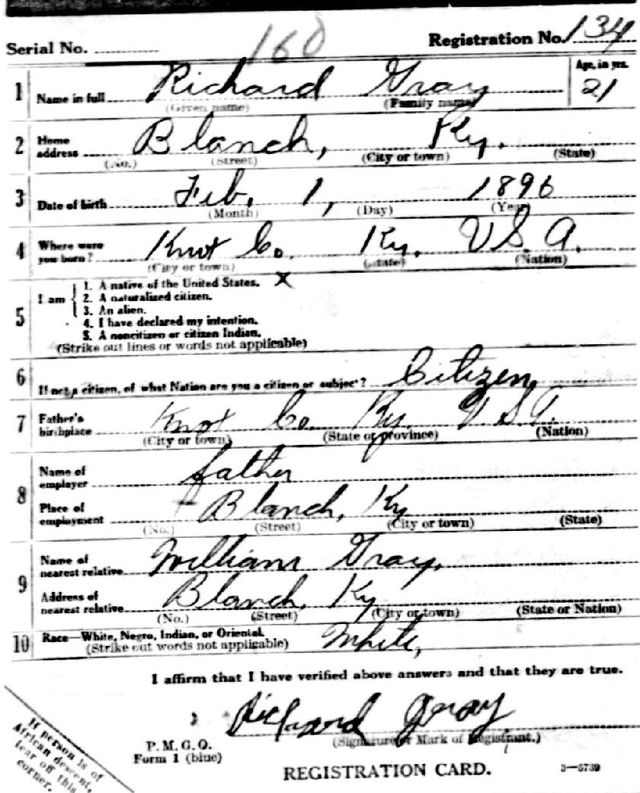 160
Serial No. Registration No. 134
1 Name in full Richard Gray Age, in yrs. 21
(Given name) (Family name)
2 Home address Blanch, Ky.
(No.) (Street) (City or town) (State)
3 Date of birth Feb. 1, 1896
(Month) (Day) (Year)
4 Where were you born? Knot Co. Ky. U.S.A.
(City or town) (State) (Nation)
5 I am
1. A native of the United States. X
2. A naturalized citizen.
3. An alien.
4. I have declared my intention.
5. A noncitizen or citizen Indian.
(Strike out lines or words not applicable)
6 If not a citizen, of what Nation are you a citizen or subject? Citizen
7 Father's birthplace Knot Co. Ky. U.S.A.
(City or town) (State or province) (Nation)
8 Name of employer father
Place of employment Blanch, Ky
(No.) (Street) (City or town) (State)
9 Name of nearest relative William Gray,
Address of nearest relative Blanch, Ky
(No.) (Street) (City or town) (State or Nation)
10 Race—White, Negro, Indian, or Oriental. White,
(Strike out words not applicable)
I affirm that I have verified above answers and that they are true.
Richard Gray
(Signature or Mark of Registrant.)
P. M. G. O.
Form 1 (blue)
REGISTRATION CARD.
3—5739
If person is of
African descent,
tear off this
corner.